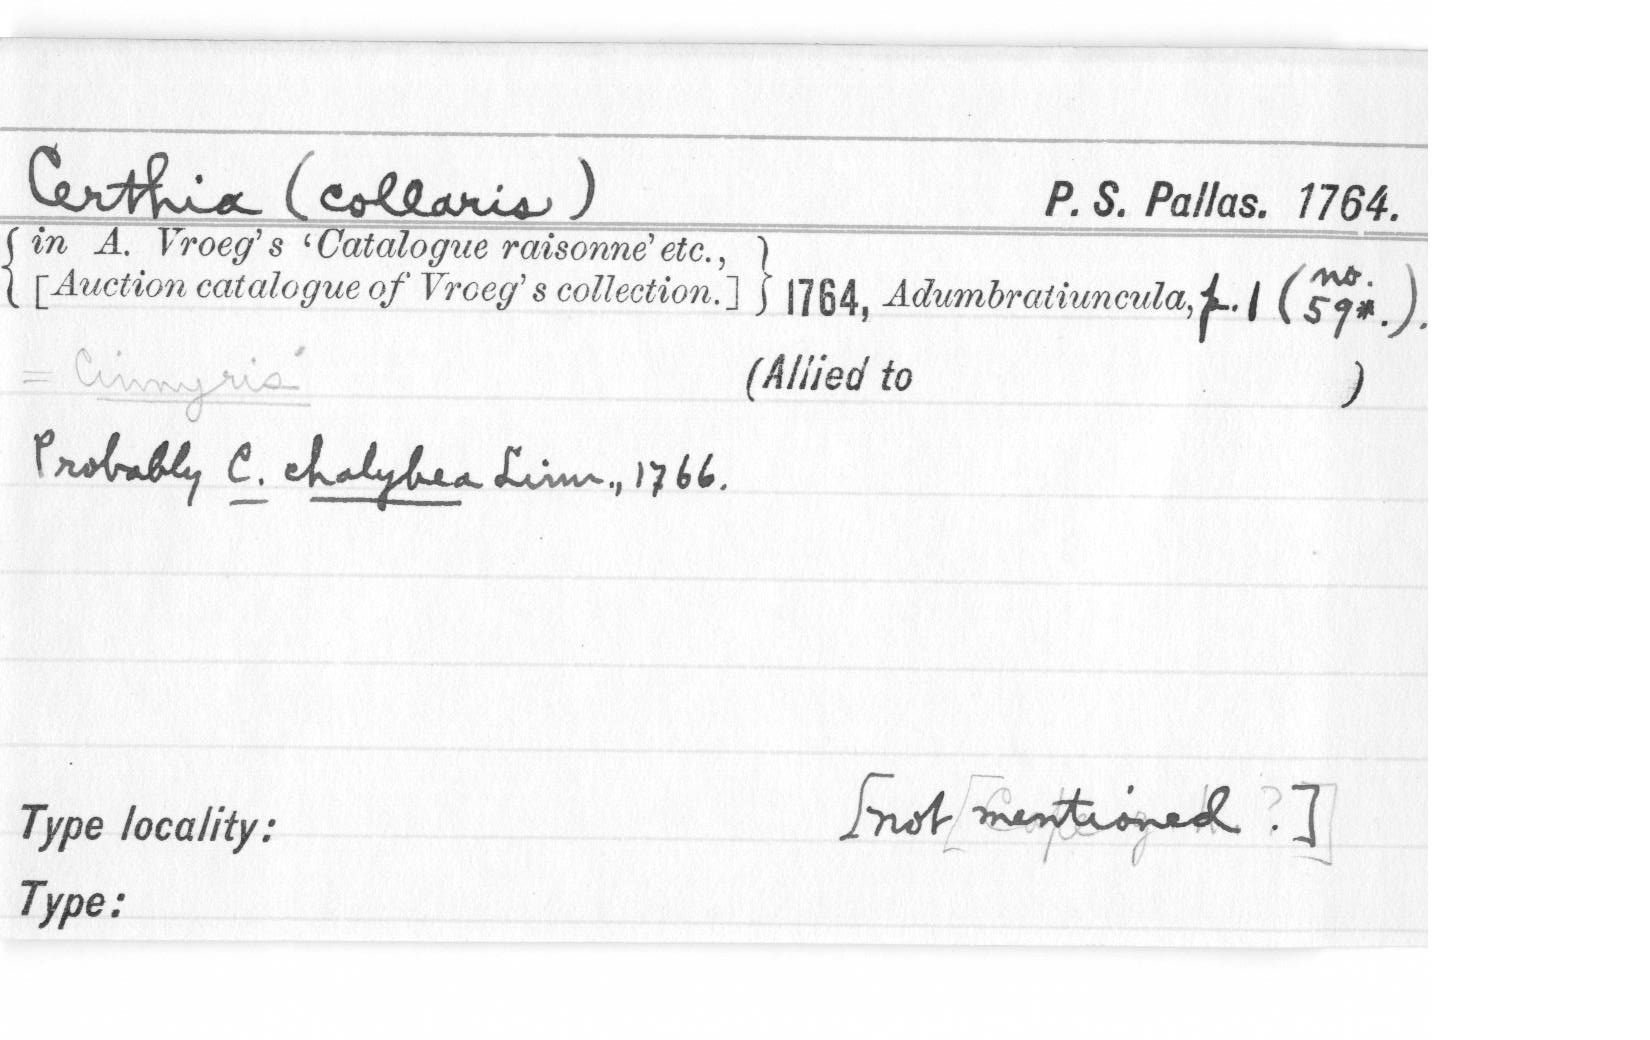 Certhia (collaris) P. S. Pallas. 1764.
{ in A. Vroeg's 'Catalogue raisonne' etc., }
{ [Auction catalogue of Vroeg's collection.] } 1764, Adumbratiuncula, p. 1 (no. 59*.).
= Cinnyris (Allied to )
Probably C. chalybea Linn., 1766.
Type locality: [not mentioned ?]
Type: